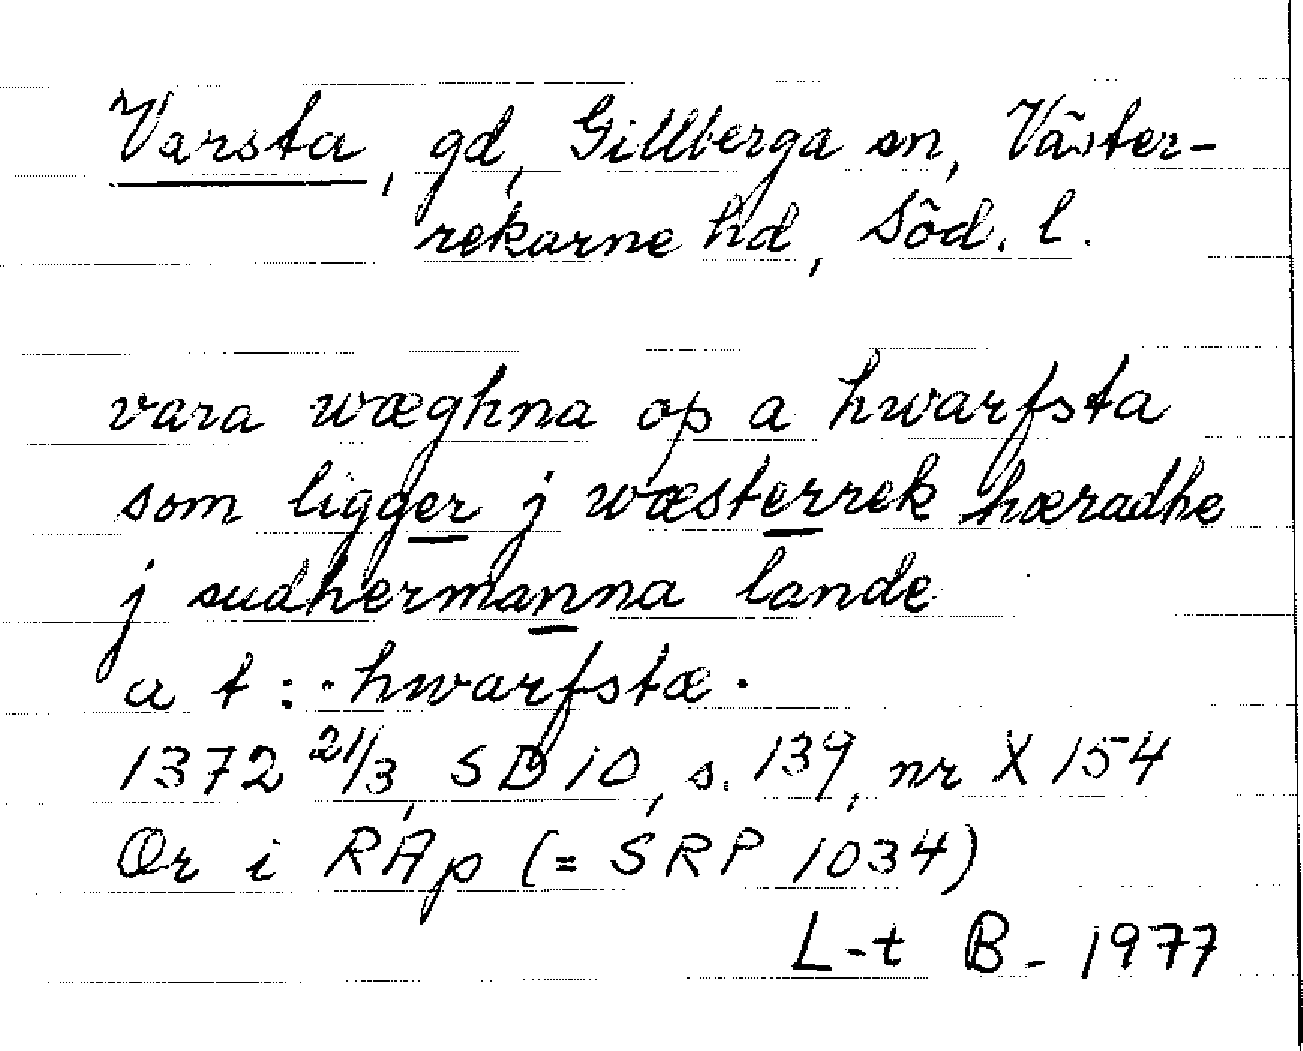 Varsta, gd, Gillberga sn, Väster-
rekarne hd, Söd. l.
vara wæghna op a hwarfsta
som ligger j wæsterrek hæradhe
j sudhermanna lande
a t : · hwarfstæ ·
1372 21/3, SD 10, s. 139, nr X 154
Or i RAp (= SRP 1034)
L-t B- 1977